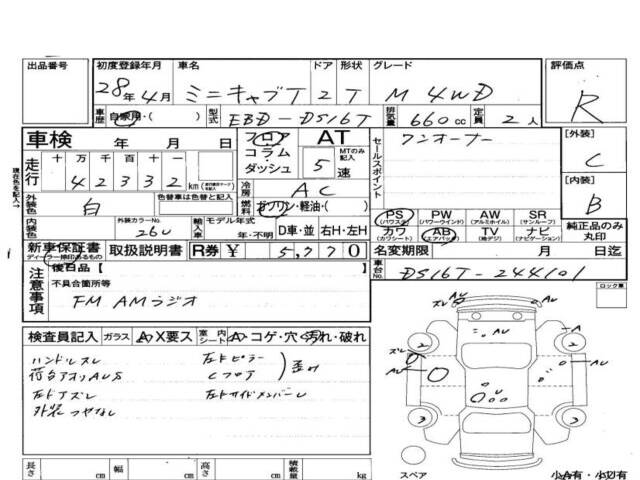 出品番号 初度登録年月 車名 ドア 形状 グレード 評価点
28年4月 ミニキャブT 2 T M 4WD R
車歴 自家用・( ) 型式 EBD-DS16T 排気量 660cc 定員 2人
車検 年 月 日 フロア コラム・ダッシュ AT MTのみ記入 5速 セールスポイント ワンオーナー [外装] C
走行 十 万 千 百 十 一
4 2 3 3 2 km
冷房 AC [内装] B
外装色 白 色替車は色替と記入 燃料 ガソリン・軽油・( )
現在色を記入→
内装色 外装カラーNo. 26U 輸入車 モデル年式 年・不明 D車・並 右H・左H
PS (パワステ) PW (パワーウインド) AW (アルミホイル) SR (サンルーフ)
カワ (カワシート) AB (エアバッグ) TV (地デジ) ナビ (ナビゲーション) 純正品のみ丸印
新車保証書 ディーラー捺印あるもの 取扱説明書 R券 ¥ 5,770 名変期限 月 日迄
車台No. DS16T-244101
ロック車
注意事項 後日品【 】
不具合箇所等
FM AMラジオ
検査員記入 ガラス A・X要ス 室内シート A・コゲ・穴・汚れ・破れ
ハンドルスレ 左Fピラー
荷台アオリAUS Cフロア 歪み
左Fドアズレ 左Fサイドメンバー
外装つやなし
AU
ズレ AU
AU A
ズレ
AU AU
2 2
3 3
スペア 少A有・少U有
長さ cm 幅 cm 高さ cm 積載量 kg